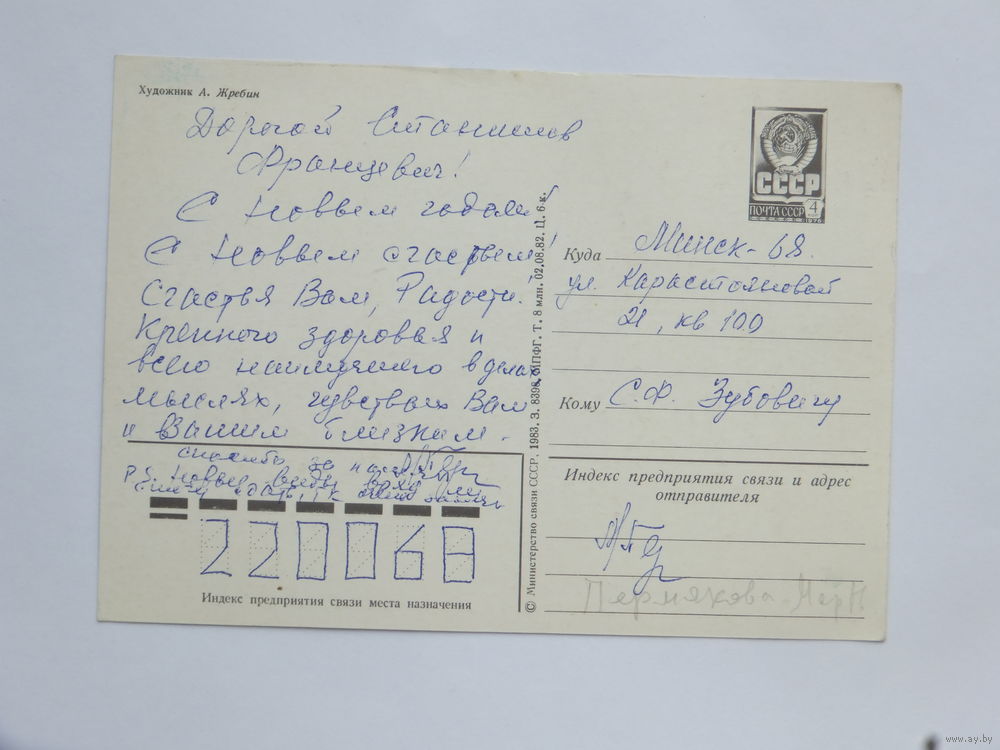 Художник А. Жребин
Дорогой Станислав
Францевич!
С Новым годом!
С Новым счастьем!
Счастья Вам, Радости!
Крепкого здоровья и
всего наилучшего в делах
мыслях, чувствах Вам
и Вашим близким.
спасибо за
P.S. Новые виды
СССР
ПОЧТА СССР 4
Куда Минск-68.
ул. Карастояновой
21, кв 100
Кому С.Ф. Зубовичу
Индекс предприятия связи и адрес
отправителя
Пермякова
220068
Индекс предприятия связи места назначения
© Министерство связи СССР. 1983. З. 8398. МПФГ. Т. 8 млн. 02.08.82. Ц. 6 к.
www.ay.by